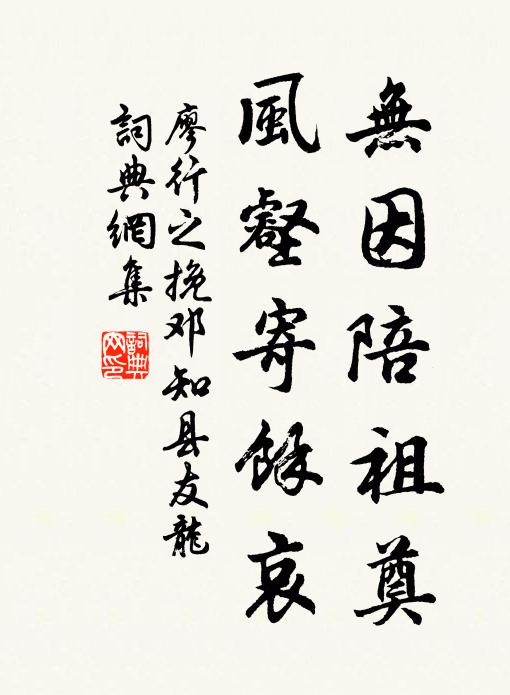 無因陪祖奠
風壑寄餘哀
廖行之挽邓知县友龍
詞典網集
詞典
网印